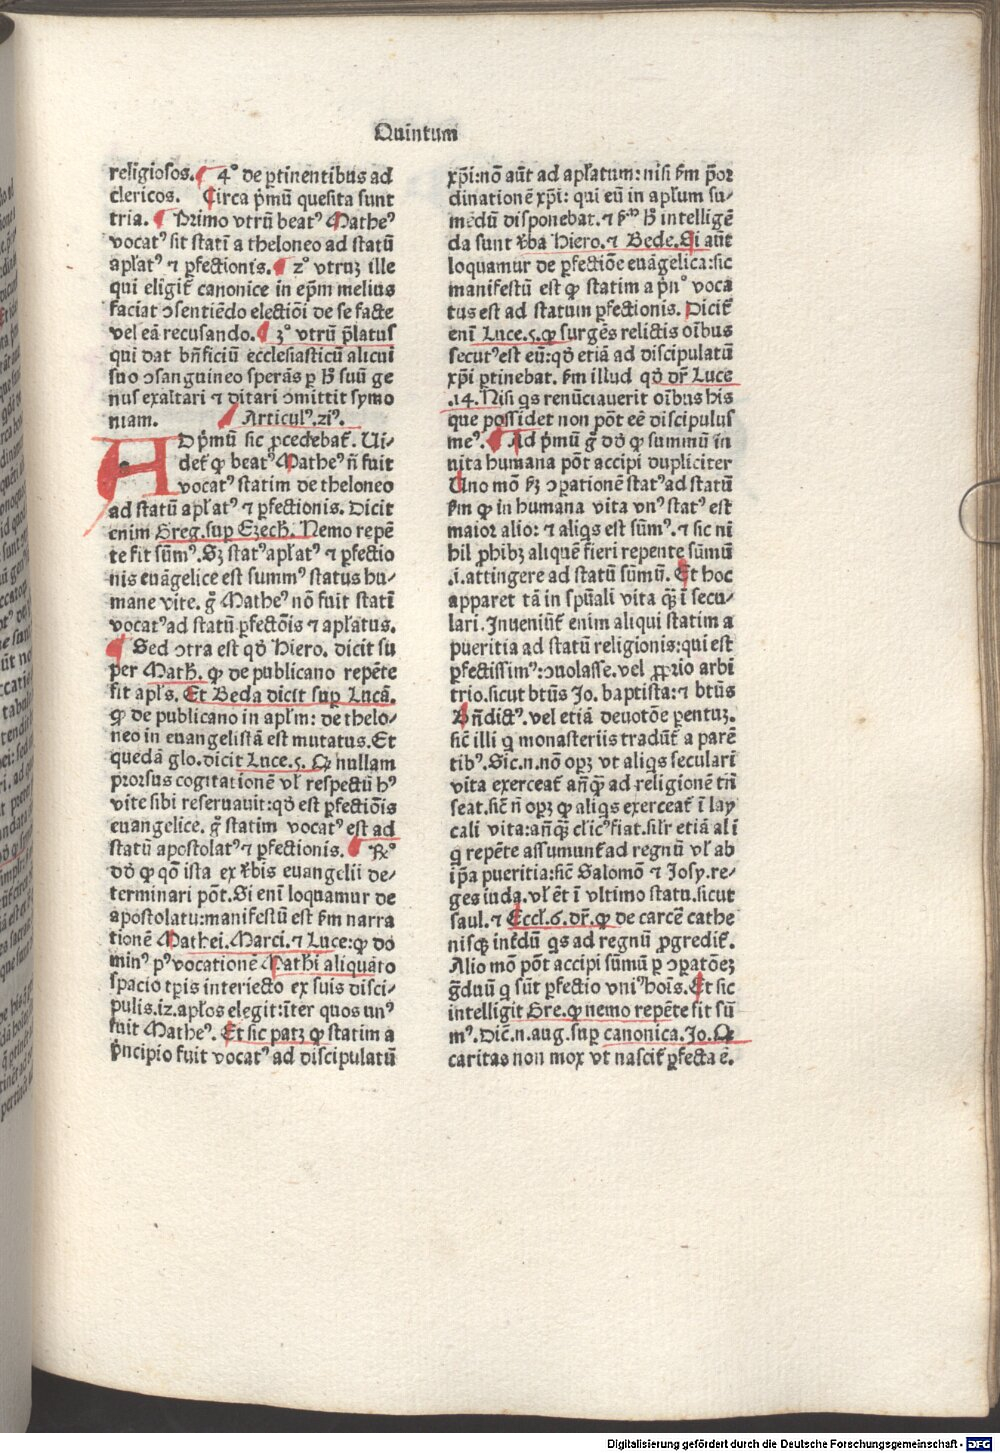 Quintum
religiosos. ¶ 4° de ꝑtinentibus ad
clericos. Circa pͥmū quesita sunt
tria. ¶ Primo vtrū beatꝰ Matheꝰ
vocatꝰ sit statī a theloneo ad statū
apl̄atꝰ ⁊ ꝑfectionis. ¶ 2° vtruꝫ ille
qui eligit᷑ canonice in ep̄m melius
faciat ↄsentiēdo electiōi de se facte
vel eā recusando. ¶ 3° vtrū p̄latus
qui dat bn̄ficiū ecclesiasticū alicui
suo ↄsanguineo sperās ꝑ ħ suū ge
nus exaltari ⁊ ditari ↄmittit symo
niam. ¶ Articulꝰ.21ꝰ.
AD pͥmū sic ꝓcedebat᷑. Ui-
det᷑ ꝙ beatꝰ Matheꝰ nō fuit
vocatꝰ statim de theloneo
ad statū apl̄atꝰ ⁊ ꝑfectionis. Dicit
enim Greg. suꝑ Ezech. Nemo repē
te fit sūmꝰ. Sꝫ statꝰ apl̄atꝰ ⁊ ꝑfectio
nis euāgelice est summꝰ status hu-
mane vite. gͦ Matheꝰ nō fuit statī
vocatꝰ ad statū ꝑfectōis ⁊ apl̄atus.
¶ Sed ↄtra est qḋ Hiero. dicit su
per Math. ꝙ de publicano repēte
fit apl̄s. Et Beda dicit suꝑ Lucā.
ꝙ de publicano in apl̄m: de thelo-
neo in euangelistā est mutatus. Et
quedā glo. dicit Luce.5. Q̇ nullam
prorsus cogitationē vl̓ respectū hꝰ
vite sibi reseruauit: qḋ est ꝑfectiōis
euangelice. gͦ statim vocatꝰ est ad
statū apostolatꝰ ⁊ ꝑfectionis. ¶ R°
dḋ ꝙ qōn ista ex v̓bis euangelii de-
terminari pōt. Si enī loquamur de
apostolatu: manifestū est fm̄ narra
tionē Mathei. Marci. ⁊ Luce: ꝙ do
minꝰ pꝰ vocationē Mathi aliquāto
spacio tꝑis interiecto ex suis disci-
pulis.12. apl̄os elegit: īter quos unꝰ
fuit Matheꝰ. Et sic patꝫ ꝙ statim a
pͥncipio fuit vocatꝰ ad discipulatū
xp̄i: nō aūt ad apl̄atum: nisi fm̄ p̄or
dinationē xp̄i: qui eū in apl̄um su-
mēdū disponebat. ⁊ ħ intelligē
da sunt v̓ba Hiero. ⁊ Bede. Si aūt
loquamur de ꝑfectiōe euāgelica: sic
manifestū est ꝙ statim a pͥnꝰ voca
tus est ad statum ꝑfectionis. Dicit᷑
enī Luce.5. ꝙ surgēs relictis oībus
secutꝰ est eū: qḋ etiā ad discipulatū
xp̄i ꝑtinebat. fm̄ illud qḋ dr̄ Luce
.14. Nisi qs renūciauerit oībus his
que possidet non pōt eē discipulus
meꝰ. ¶ Ad pͥmū gͦ dḋ ꝙ summū in
vita humana pōt accipi dupliciter
Uno mō fꝫ ↄꝑationē statꝰ ad statū
fm̄ ꝙ in humana vita vnꝰ statꝰ est
maior alio: ⁊ aliqs est sūmꝰ. ⁊ sic ni
hil ꝓhibꝫ aliquē fieri repente sūmū
.i. attingere ad statū sūmū. Et hoc
apparet tā in spūali vita qꝫ ī secu-
lari. Inueniūt᷑ enim aliqui statim a
pueritia ad statū religionis: qui est
ꝑfectissimꝰ: ↄuolasse. vel ꝓprio arbi
trio. sicut btūs Jo. baptista: ⁊ btūs
Bn̄dictꝰ. vel etiā deuotōe ꝑentuꝫ.
sic̄ illi q̇ monasteriis tradūt᷑ a parē
tibꝰ. Sic.n. nō oꝑꝫ vt aliqs seculari
vita exerceat᷑ añq̄ ad religionē trā
seat. sic̄ n̄ oꝑꝫ ꝙ aliqs exerceat᷑ ī lay
cali vita: añq̄ꝫ clic̄ꝰ fiat. sil̓r etiā al̓i
q̇ repēte assumunt᷑ ad regnū vl̓ ab
ip̄a pueritia: sic̄ Salomō ⁊ Josy. re-
ges iuda. vl̓ ēt ī vltimo statu. sicut
saul. ⁊ Eccl̓.6. dr̄. ꝙ de carcē cathe
nisqꝫ int̓dū qs ad regnū ꝓgredit᷑.
Alio mō pōt accipi sūmū ꝑ ↄꝑatōeꝫ
gͣduū q̇ sūt ꝑfectio vniꝰ hoīs. Et sic
intelligit Gre. ꝙ nemo repēte fit sū
mꝰ. Dic̄.n. aug. suꝑ canonica. Jo. Q̇
caritas non mox vt nascit᷑ ꝑfecta ē.
Digitalisierung gefördert durch die Deutsche Forschungsgemeinschaft - DFG